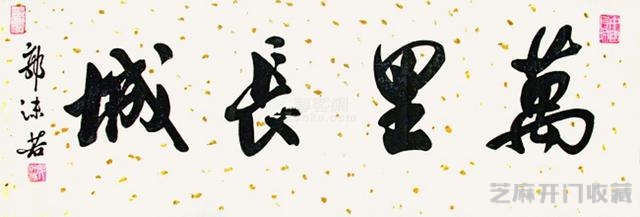 萬里長城
郭沫若
芝麻开门收藏